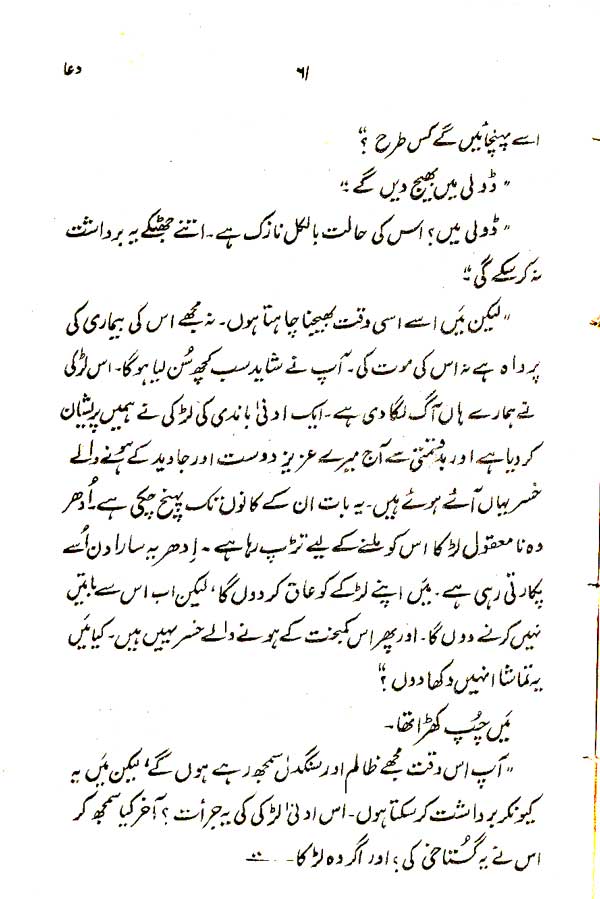 دعا
۶۱
اسے پہنچائیں گے کس طرح ؟“
” ڈولی میں بھیج دیں گے ؛“
” ڈولی میں؟ اس کی حالت بالکل نازک ہے۔ اتنے جھٹکے یہ برداشت
نہ کر سکے گی ؛“
” لیکن میں اسے اسی وقت بھیجنا چاہتا ہوں۔ نہ مجھے اس کی بیماری کی
پرواہ ہے نہ اس کی موت کی۔ آپ نے شاید سب کچھ سُن لیا ہوگا۔ اس لڑکی
نے ہمارے ہاں آگ لگا دی ہے۔ ایک ادنیٰ باندی کی لڑکی نے ہمیں پریشان
کر دیا ہے اور بدقسمتی سے آج میرے عزیز دوست اور جاوید کے ہونے والے
خسر یہاں آئے ہوئے ہیں۔ یہ بات ان کے کانوں تک پہنچ چکی ہے۔ اُدھر
وہ نامعقول لڑکا اس کو ملنے کے لیے تڑپ رہا ہے ۔ اِدھر یہ سارا دن اُسے
پکارتی رہی ہے۔ میں اپنے لڑکے کو عاق کر دوں گا، لیکن اب اس سے باتیں
نہیں کرنے دوں گا۔ اور پھر اس کمبخت کے ہونے والے خسر یہیں ہیں۔ کیا میں
یہ تماشا انہیں دکھا دوں ؟“
میں چُپ کھڑا تھا۔
” آپ اس وقت مجھے ظالم اور سنگدل سمجھ رہے ہوں گے، لیکن میں یہ
کیونکر برداشت کر سکتا ہوں۔ اس ادنیٰ لڑکی کی یہ جرأت ؟ آخر کیا سمجھ کر
اس نے یہ گستاخی کی ؛ اور اگر وہ لڑکا۔